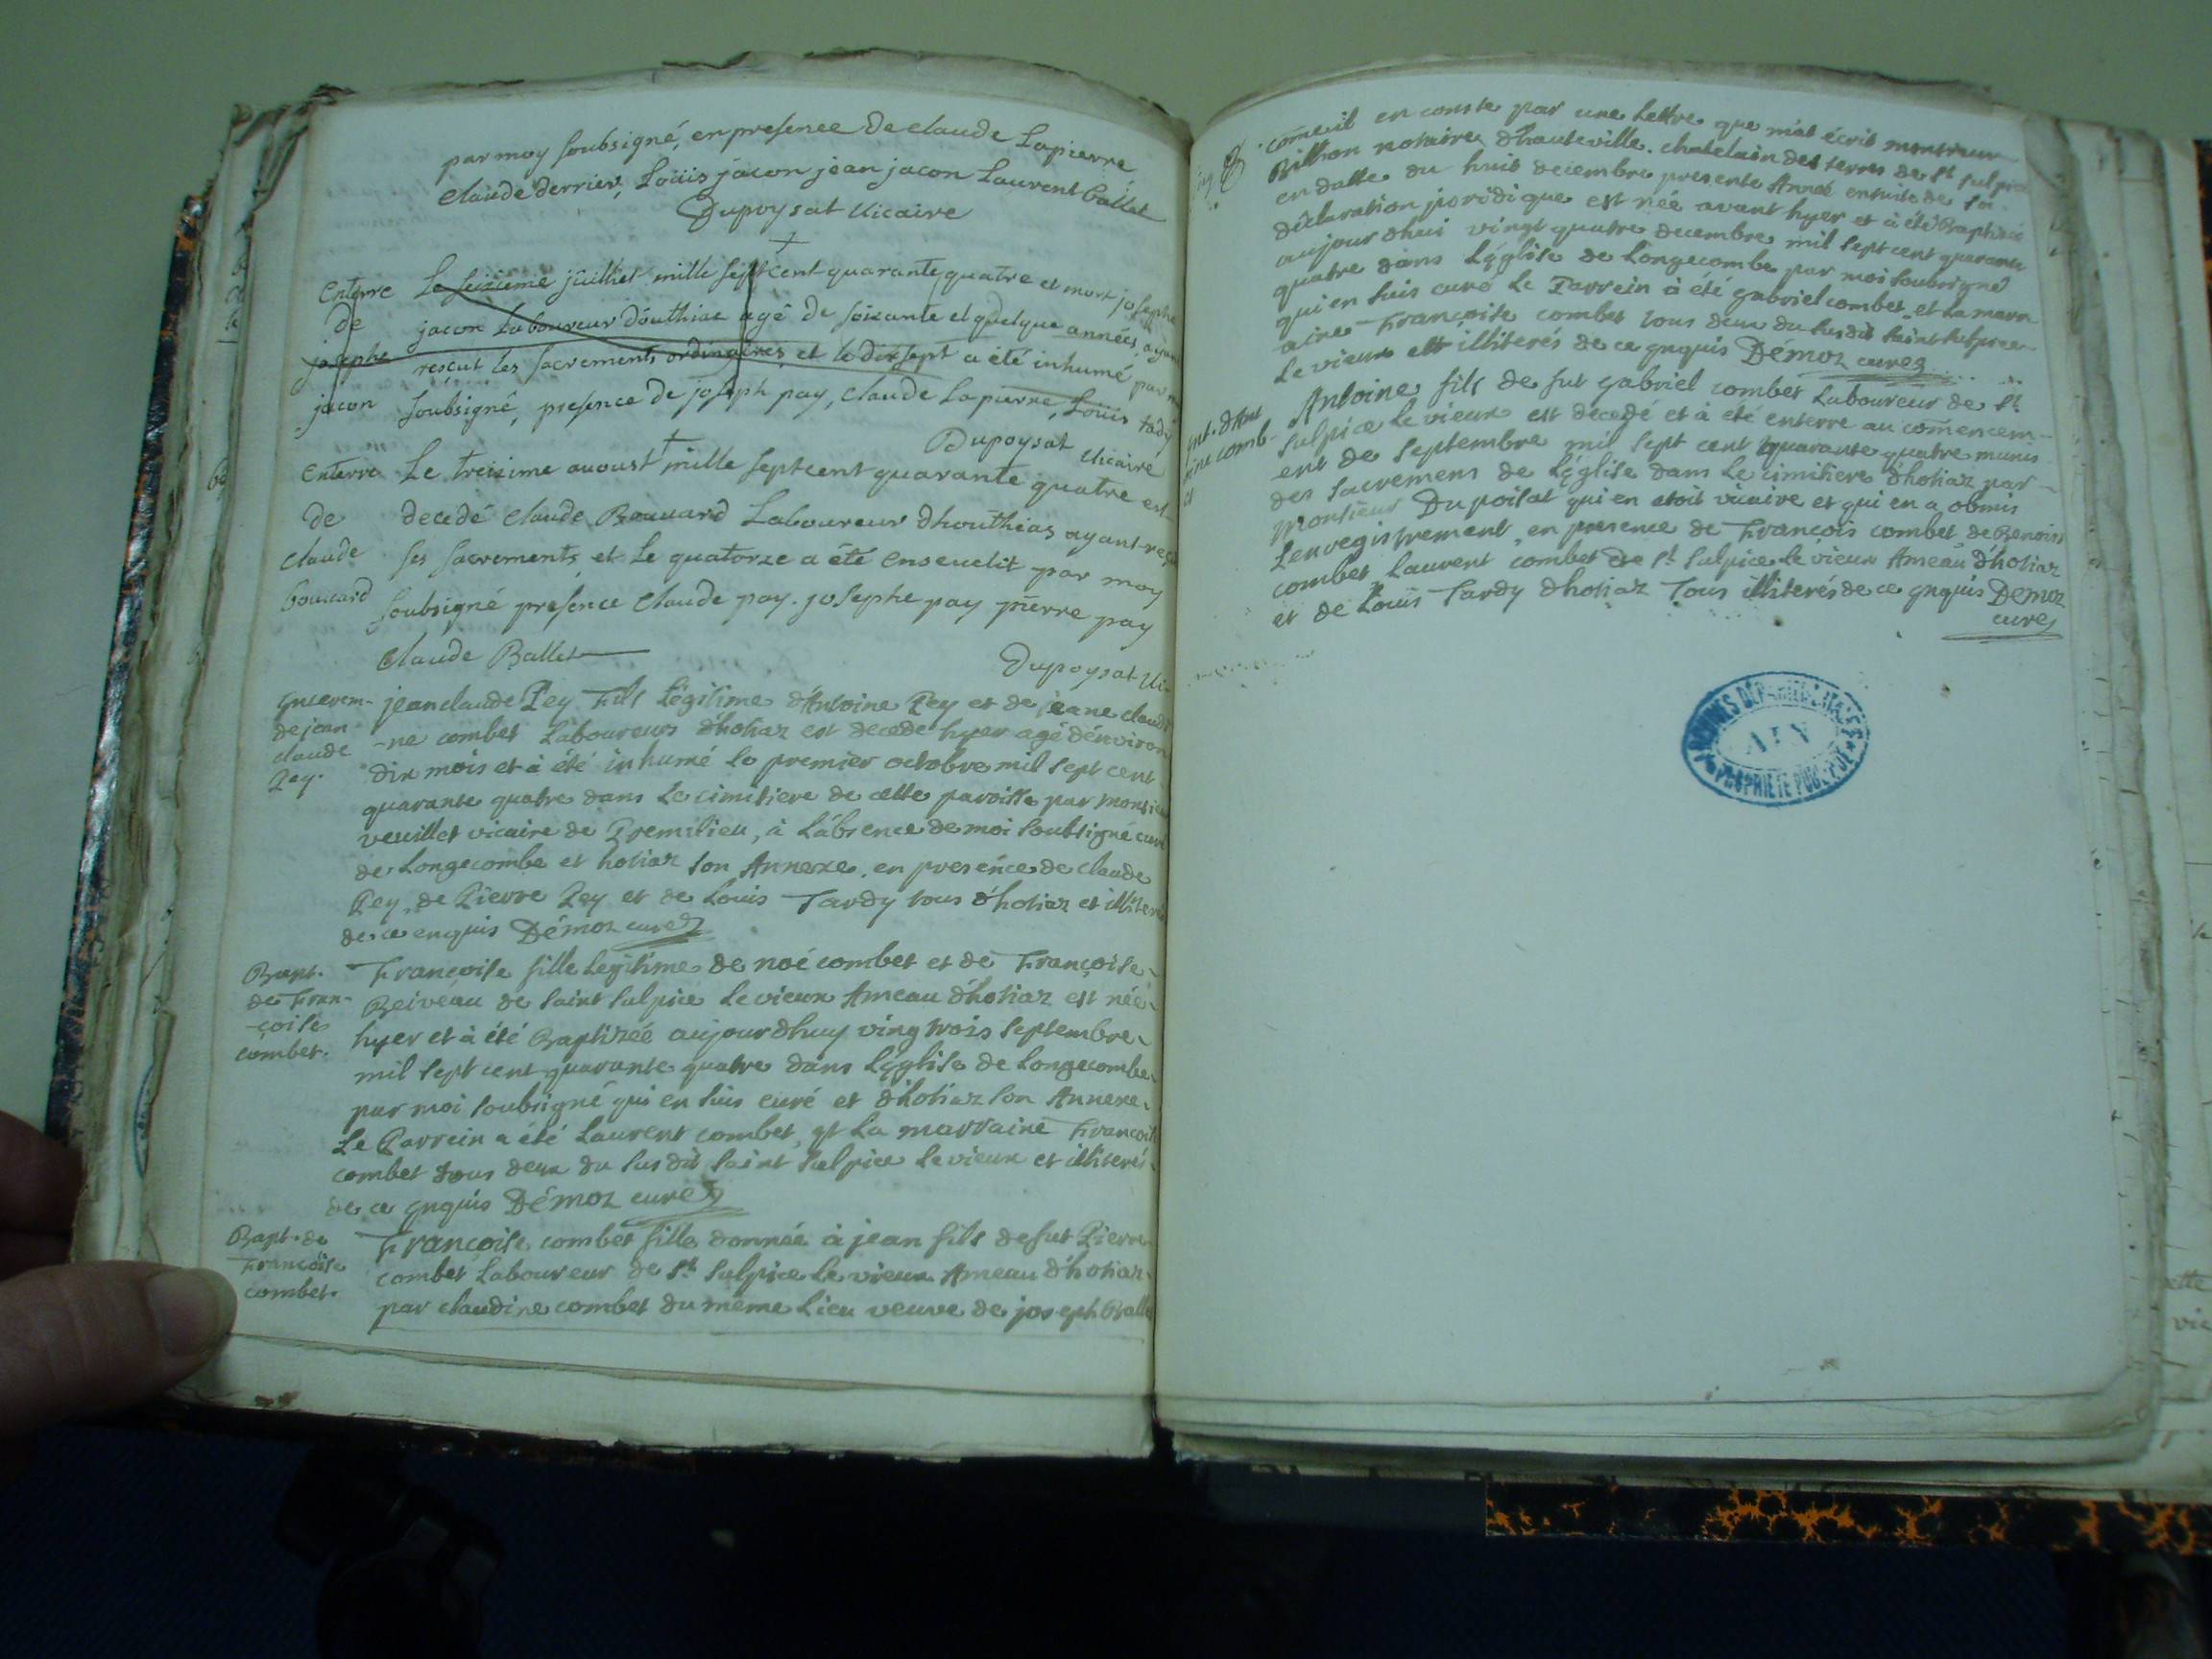 par moy soubsigné, en presence de claude Lapierre
claude derrier, Loüis jacon jean jacon Laurent Ballet
Dupoysat Vicaire
Enterre de josephe jacon
Le seizieme juilliet mille septcent quarante quatre et mort josephe
jacon Laboureur d'outhiae agé de soixante et quelque années, ayant
rescut les sacrements ordinaires et le dixsept a été inhumé par m
soubsigné, presence de joseph pay, claude Lapierre, Loüis tady
Dupoysat Vicaire
Enterre de claude bouvard
Le treizime avoust mille septcent quarante quatre est
decedé claude Bouvard Laboureur dhouthias ayant reçu
ses sacrements et Le quatorze a été ensevelit par moy
soubsigné presence claude pay. josephe pay pierre pay
claude Ballet
Dupoysat Vi-
de jean claude Pey.
jean claude Pey Fils Légitime d'Antoine Pey et de jeane claudi
-ne combet Laboureurs d'hotiaz est decede hyer agé d'environ
dix mois et à été inhumé le premier octobre mil sept cent
quarante quatre dans Le cimitiere de cette paroisse par monsieu
veuillet vicaire de Premilieu, à L'absence de moi soubsigné curé
de Longecombe et hotiaz son Annexe, en presence de claude
Pey, de Pierre Pey et de Louis Tardy tous d'hotiaz et illiteré
de ce enquis Démoz curé
Bapt. de Fran-
-çoise combet.
Françoise fille Legitime de noé combet et de Françoise
Beiveau de saint sulpice Le vieux Ameau d'hotiaz est née
hyer et à été Baptizée aujourdhuy ving trois septembre
mil sept cent quarante quatre dans L'église de Longecombe
par moi soubsigné qui en suis curé et d'hotiaz son Annexe
Le Parrein a été Laurent combet, et La marraine Françoise
combet tous deux du susdit saint sulpice Le vieux et illiterés
de ce enquis Démoz curé
Bapt. de Françoise combet.
Françoise combet fille donnée à jean fils de fut Pierre
combet Laboureur de st. sulpice Le vieux Ameau d'hotiaz
par claudine combet du même Lieu veuve de joseph Balle
comme il en conste par une Lettre que m'at écrit monsieur
Billion notaire d'hauteville. chatelain des terres de st. sulpice
en datte du huit decembre presente Année ensuite de sa
déclaration joridique est née avant hyer et à été Baptizée
aujourdhui vingt quatre decembre mil sept cent quarante
quatre dans L'église de Longecombe par moi soubsigné
qui en suis curé Le Parrein à été gabriel combet, et La marr
aine Françoise combet tous deux du susdit saint sulpice
Le vieux et illiterés de ce enquis Démoz curé
Ant. d'Ant
oine comb-
et
Antoine fils de fut gabriel combet Laboureur de st.
sulpice Le vieux est decedé et à été enterre au comencem-
ent de septembre mil sept cent quarante quatre munis
des sacremens de L'église dans Le cimitiere d'hotiaz par
monsieur Dupoisat qui en etoit vicaire et qui en a obmis
L'enregistrement, en presence de François combet, de Benoist
combet Laurent combet de st. sulpice Le vieux Ameau d'hotiaz
et de Louis Tardy d'hotiaz Tous illiterés de ce enquis Demoz
curé
ARCHIVES DÉPARTEMENTALES
AIN
PROPRIÉTÉ PUBLIQUE